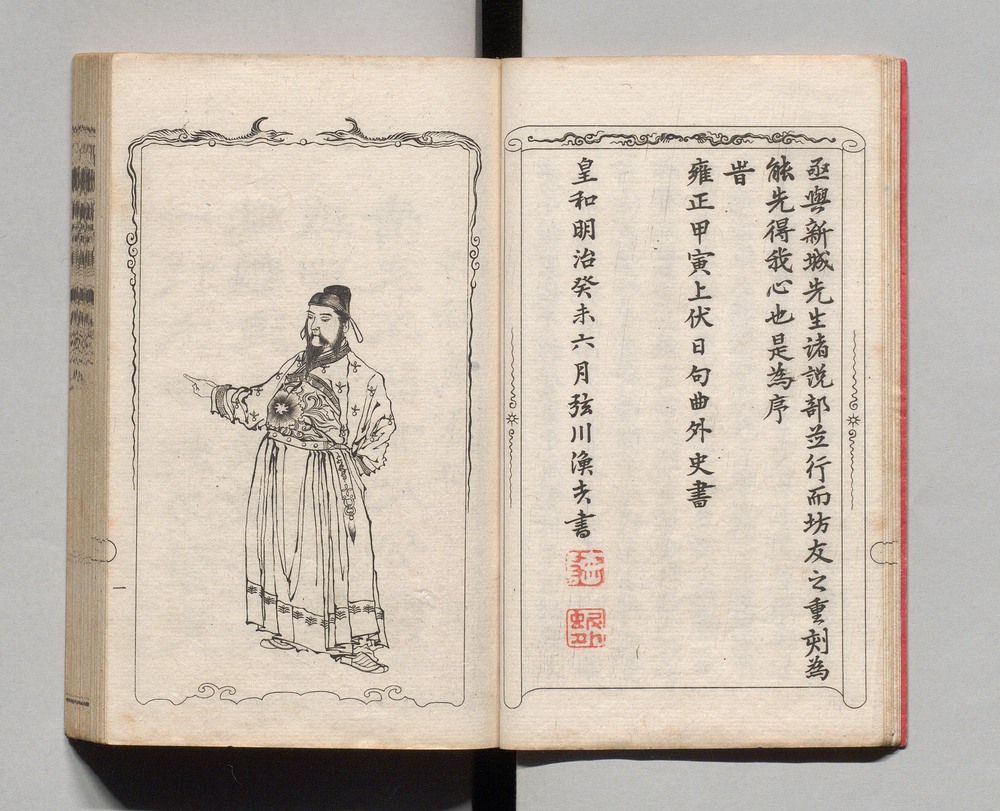 亟與新城先生諸說部並行而坊友之重刻為
能先得我心也是為序
旹
雍正甲寅上伏日句曲外史書
皇和明治癸未六月弦川漁夫書